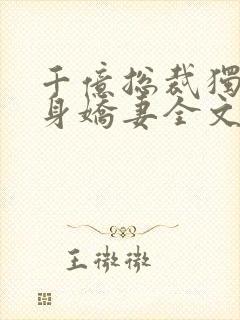 千億總裁獨
身嬌妻全文
王微微